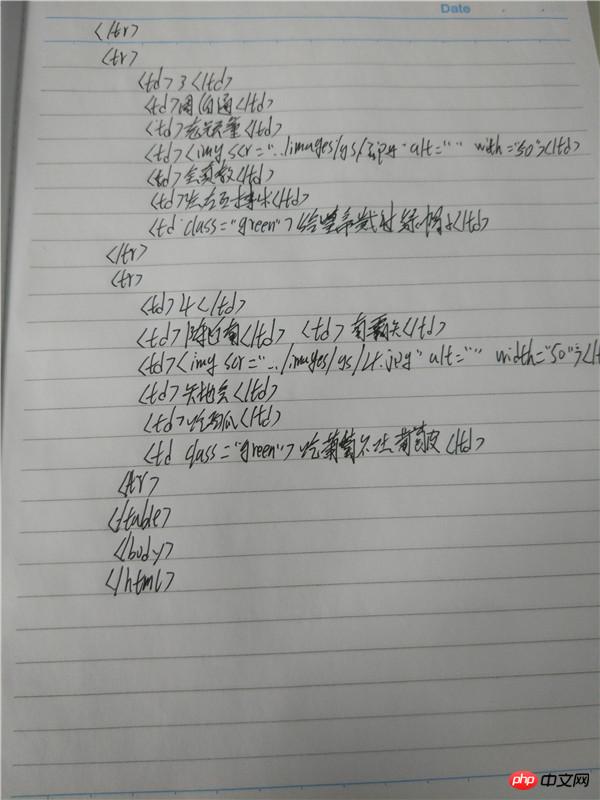 Date
</tr>
<tr>
<td>3</td>
<td>周伯通</td>
<td>老顽童</td>
<td><img scr="../images/gs/3.jpg" alt="" with="50"></td>
<td>全真教</td>
<td>左右互搏术</td>
<td class="green">给皇帝戴时绿帽子</td>
</tr>
<tr>
<td>4</td>
<td>陈近南</td> <td>南霸天</td>
<td><img scr="../images/gs/4.jpg" alt="" width="50"></t
<td>天地会</td>
<td>吃西瓜</td>
<td class="green">吃葡萄不吐葡萄皮</td>
</tr>
</table>
</body>
</html>
php 中文网